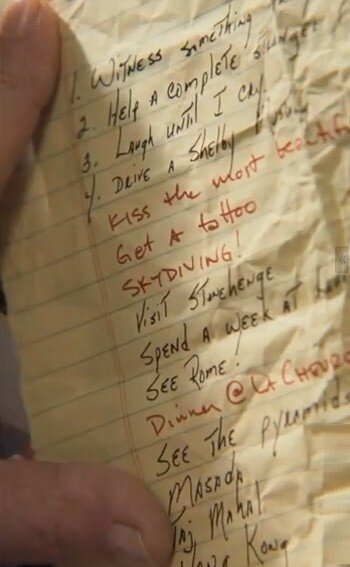 1. Witness something
2. Help a complete stranger
3. Laugh until I cry
4. Drive a Shelby
Kiss the most beautif
Get a tattoo
SKYDIVING!
Visit Stonehenge
Spend a week at
See Rome!
Dinner @ La Chevre
See the Pyramids
Masada
Taj Mahal
Hong Kong